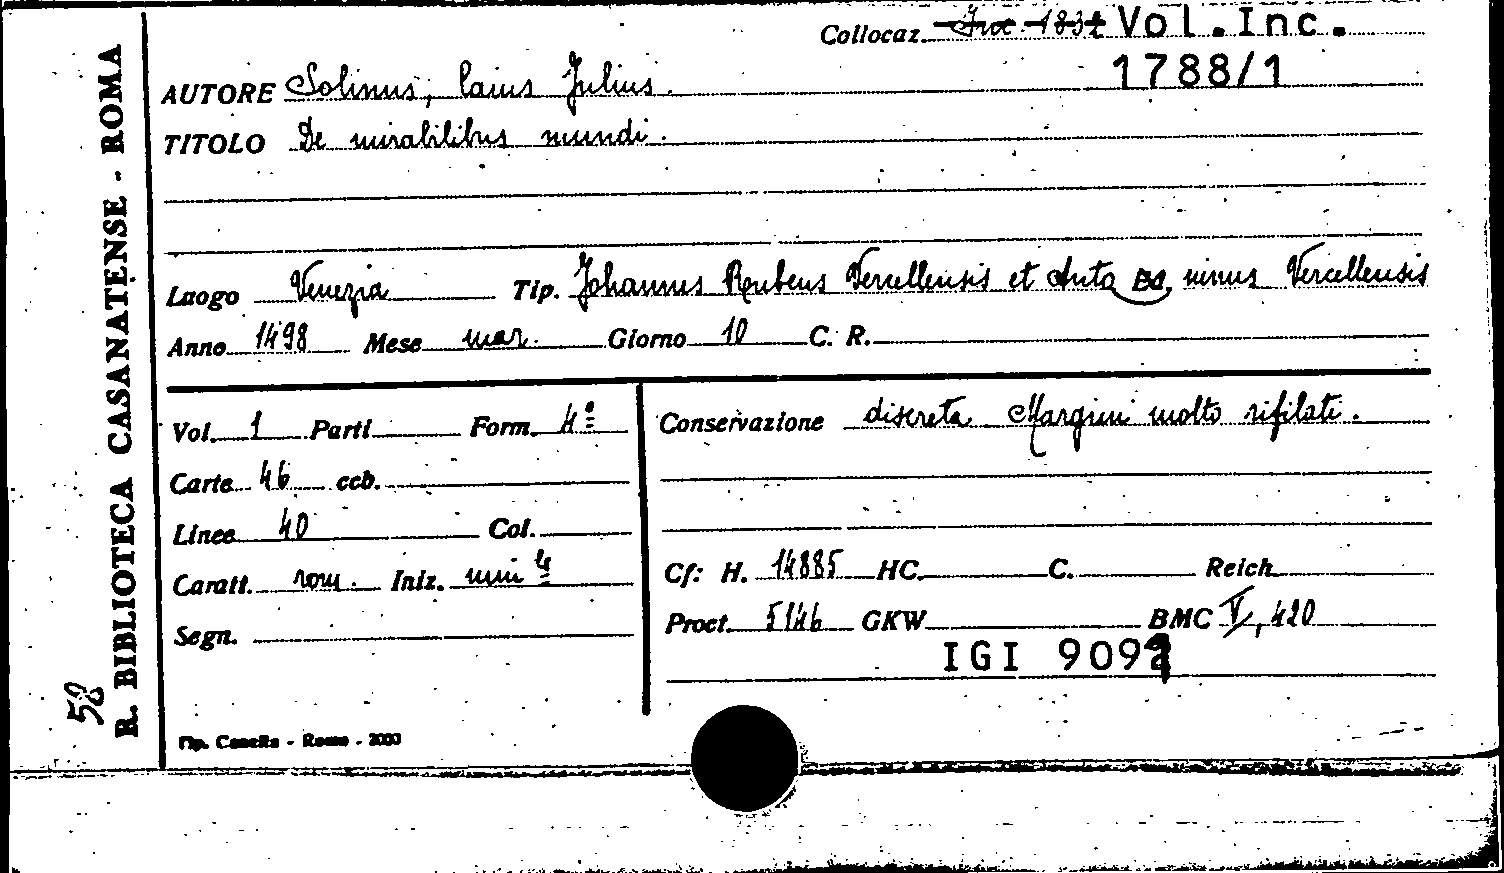 Collocaz. Inc. 1832 Vol.Inc.
1788/1
AUTORE Solinus, Caius Julius.
TITOLO De mirabilibus mundi.
Luogo Venezia Tip. Johannes Rubeus Vercellensis et Anto ninus Vercellensis
Anno 1498 Mese mar. Giorno 10 C. R.
Vol. 1 Parti Form. 4º
Carte 46 ccb.
Linee 40 Col.
Caratt. rom. Iniz. min le
Segn.
Conservazione discreta. Margini molto rifilati.
Cf: H. 14885 HC. C. Reich.
Proct. 5146 GKW BMC V, 420
IGI 9091
Tip. Canella - Roma - 2000
R. BIBLIOTECA CASANATENSE - ROMA
58